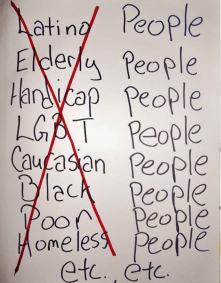 Latino People
Elderly People
Handicap People
LGBT People
Caucasian People
Black People
Poor People
Homeless People
etc. etc.